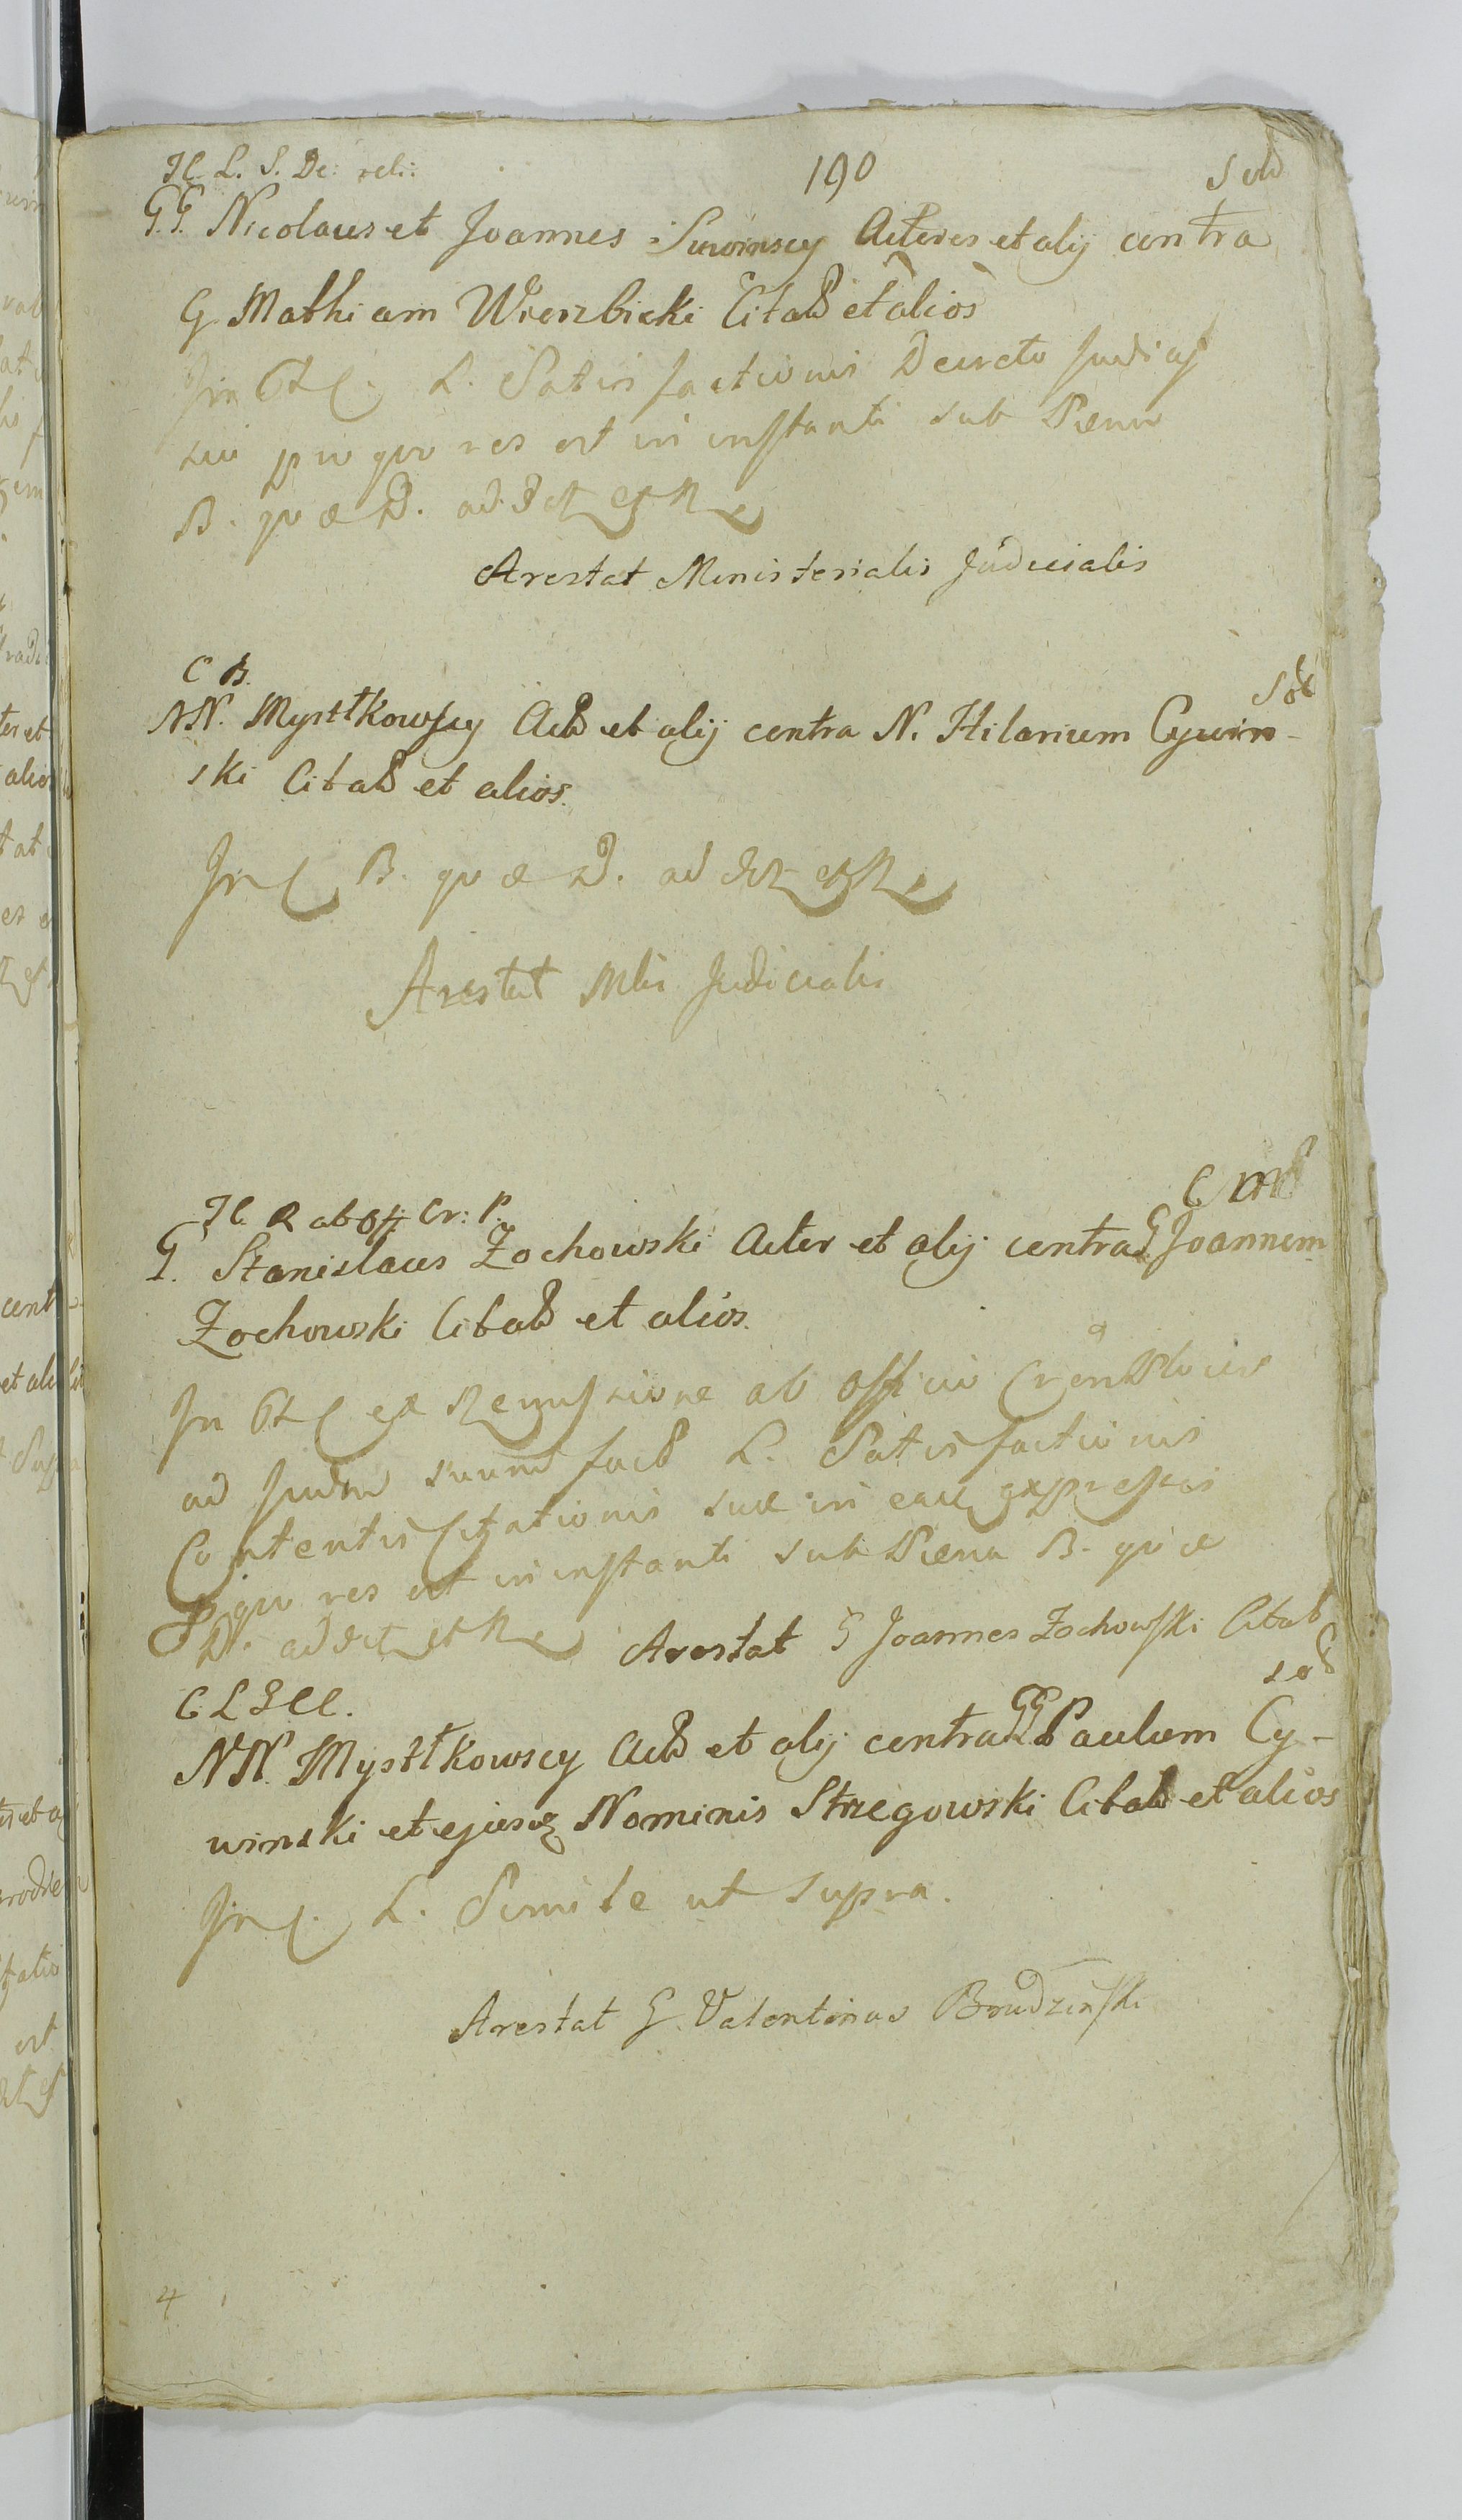 H. L. S. De: reli:
190
Sold
G.G. Nicolaus et Joannes Suwinscy Actores et alij contra
G. Mathiam Wierzbicki Citatd et alios
In L. Satisfactionis Decreto Judicij
sui pro quo res est in instanti sub Pœna
B. quæ D. ad et R
Arestat Ministerialis Judicialis
C B.
NN. Mysttkowscy Actd et alij contra N. Hilarium Cywin-
ski Citatd et alios.
In C B. quæ D. ad et R
Arestat Mlis Judicialis
H. R ab Off Cr: P.
G. Stanislaus Zochowski Actor et alij contra G. Joannem
Zochowski Citatd et alios.
In ex Remissione ab Officio
ad suum L. Satisfactionis
Contentis Citationis suæ in eaq expressis
quo res est in instanti sub Pœna B. quæ
D. ad et R Arestat G Joannes Zochowski Citat
C L S CC.
NN. Mysttkowscy Actd et alij contra GG Paulum Cy-
winski et ejusq Nominis Strzegowski Citatd et alios
In C. L. Simile ut supra.
Arestat G. Valentinus Brudzinski
4